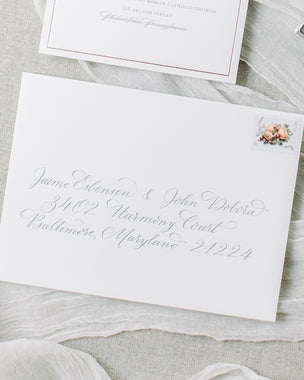 ROMAN CATHOLIC CHURCH
146 RECTOR STREET
Philadelphia, Pennsylvania
Jaime Esbensen & John Dobora
3402 Harmony Court
Baltimore, Maryland 21224